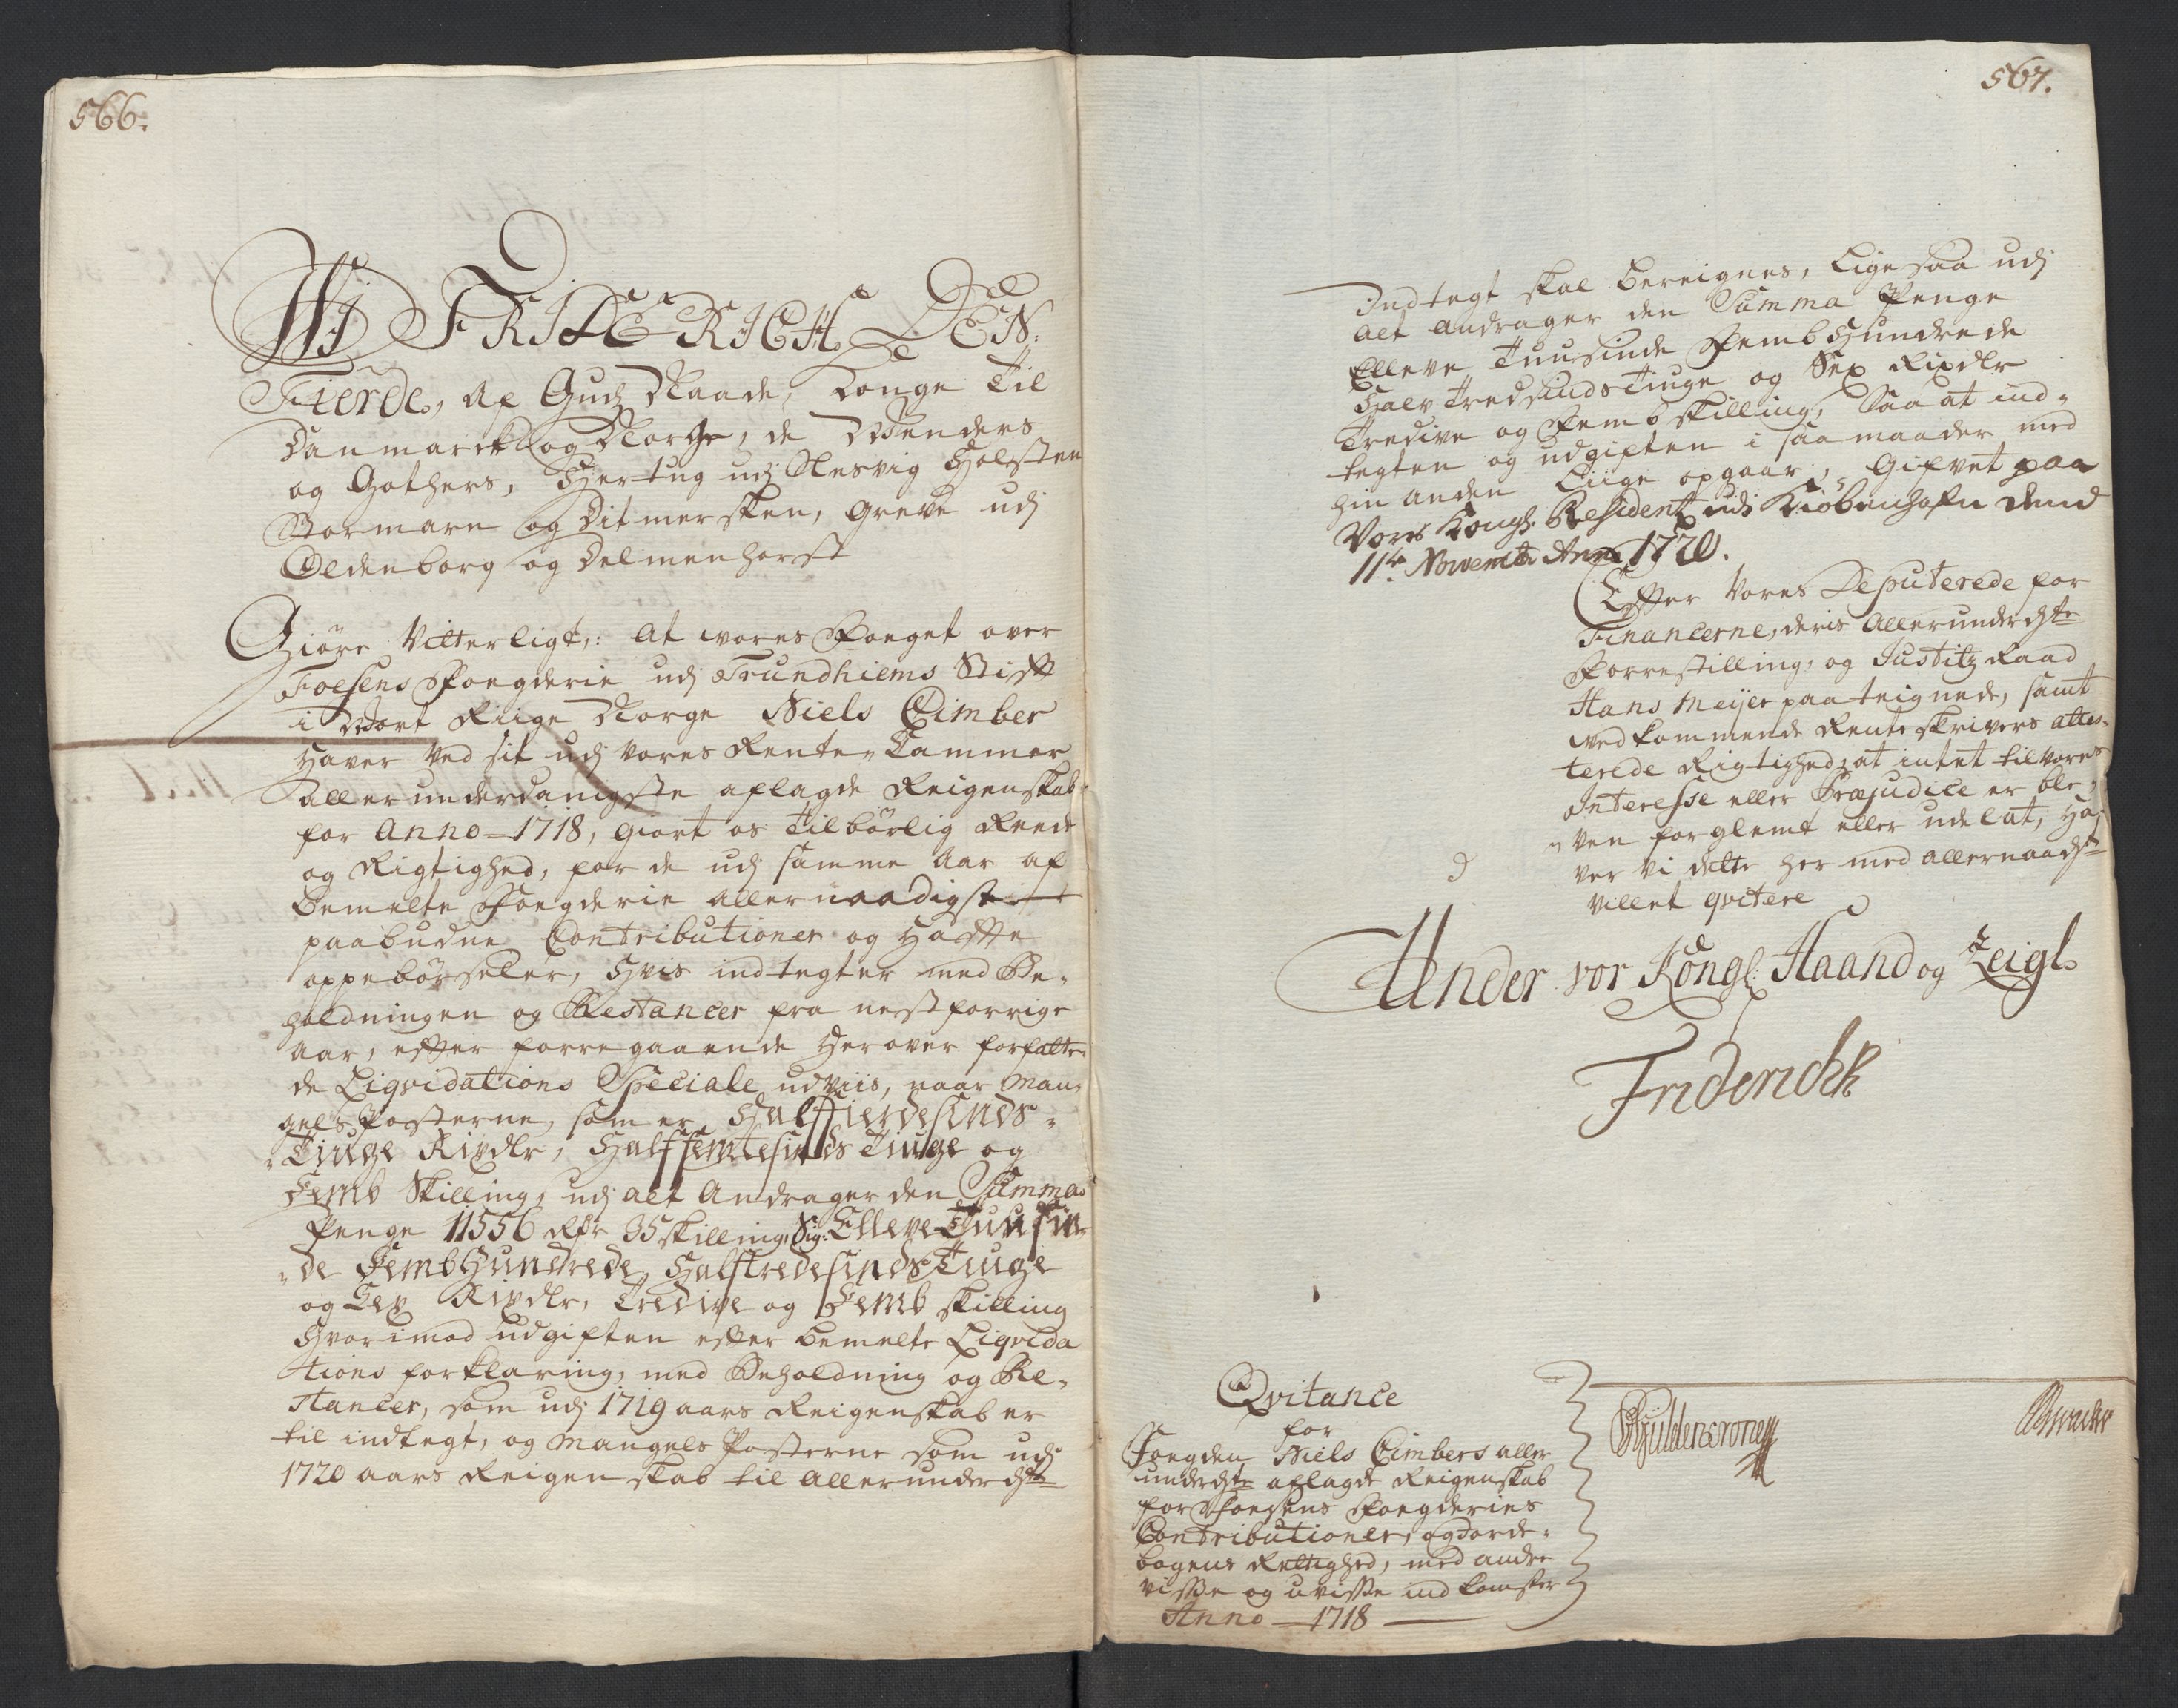 566.
WJ FRIDERICH DEN
Fierde, Af Gudz Naade, Konge Til
Danmarck og Norge, de Wenders
og Gothers, Hertug udj Slesvig Holsten
Stormarn og Ditmersken, Greve udj
Oldenborg og Delmenhorst
Giöre Vitterligt,: At vores Foeget over
Foesens Foegderie udj Trundhiems Stift
i Vort Riige Norge Niels Cimber
haver ved sit udj vores Rente-Cammer
allerunderdanigste aflagde Reigenskab
for Anno 1718, giort os Tilbörlig Reede
og Rigtighed, for de udj samme Aar af
bemelte Foegderie allernaadigst
paabudne Contributioner og Haffte
oppebörseler, Hvis indtegter med Be-
holdningen og Restancer fra nestforrige
Aar, efter forregaaende Herover forfatte-
de Liqvidations Speciale udviis, naar Man-
gels Posterne, som er Halffierdesinds-
Tiuge Rixdlr, Halffemtesinds Tiuge og
Femb Skilling, udj alt Andrager den Summa
Penge 11556 Rdr 35 skilling, Sig: Elleve Tuusin-
de Fembhundrede Halftredesinds Tiuge
og Sex Rixdlr, Tredive og Femb skilling
Hvorimod udgiften efter bemelte Liqvida
tions forklaring, med Beholdning og Re-
stancer, som udj 1719 aars Reigenskab er
til indtegt, og Mangels Posterne som udj
1720 aars Reigenskab til allerunderdste
567.
Indtegt skal bereignes, Ligesaa udj
alt andrager den Summa Penge
Elleve Tuusinde Fembhundrede
Halvtredsinds Tiuge og Sex Rixdlr
Tredive og Femb skilling, Saa at ind-
tegten og udgiften i saa maader med
hin anden Liige opgaar, Gifvet paa
Vores Kongl. Residentz udi Kiöbenhafn dend
11te. Novembr Anno 1720.
Efter Vores Deputerede for
Financerne, deris Allerunderdste
Forrestilling, og Justitz Raad
Hans Meyer paateignede, samt
vedkommende Renteskrivers attes-
terede Rigtighed, at intet til vores
Interesse eller Præjudice er ble-
ven forglemt eller udelat, Ha-
ver Vi dette her med allernaadst
villet qvitere
Under vor Kongl: Haand og Zeigl.
Friderickh
Qvitance
for
Foegden Niels Cimbers aller
underdste aflagde Reigenskab
for Foesens Foegderies
Contributioner, og Jorde-
bogens Rettighed, med andre
visse og uvisse indkomster
Anno 1718
Gyldencrone